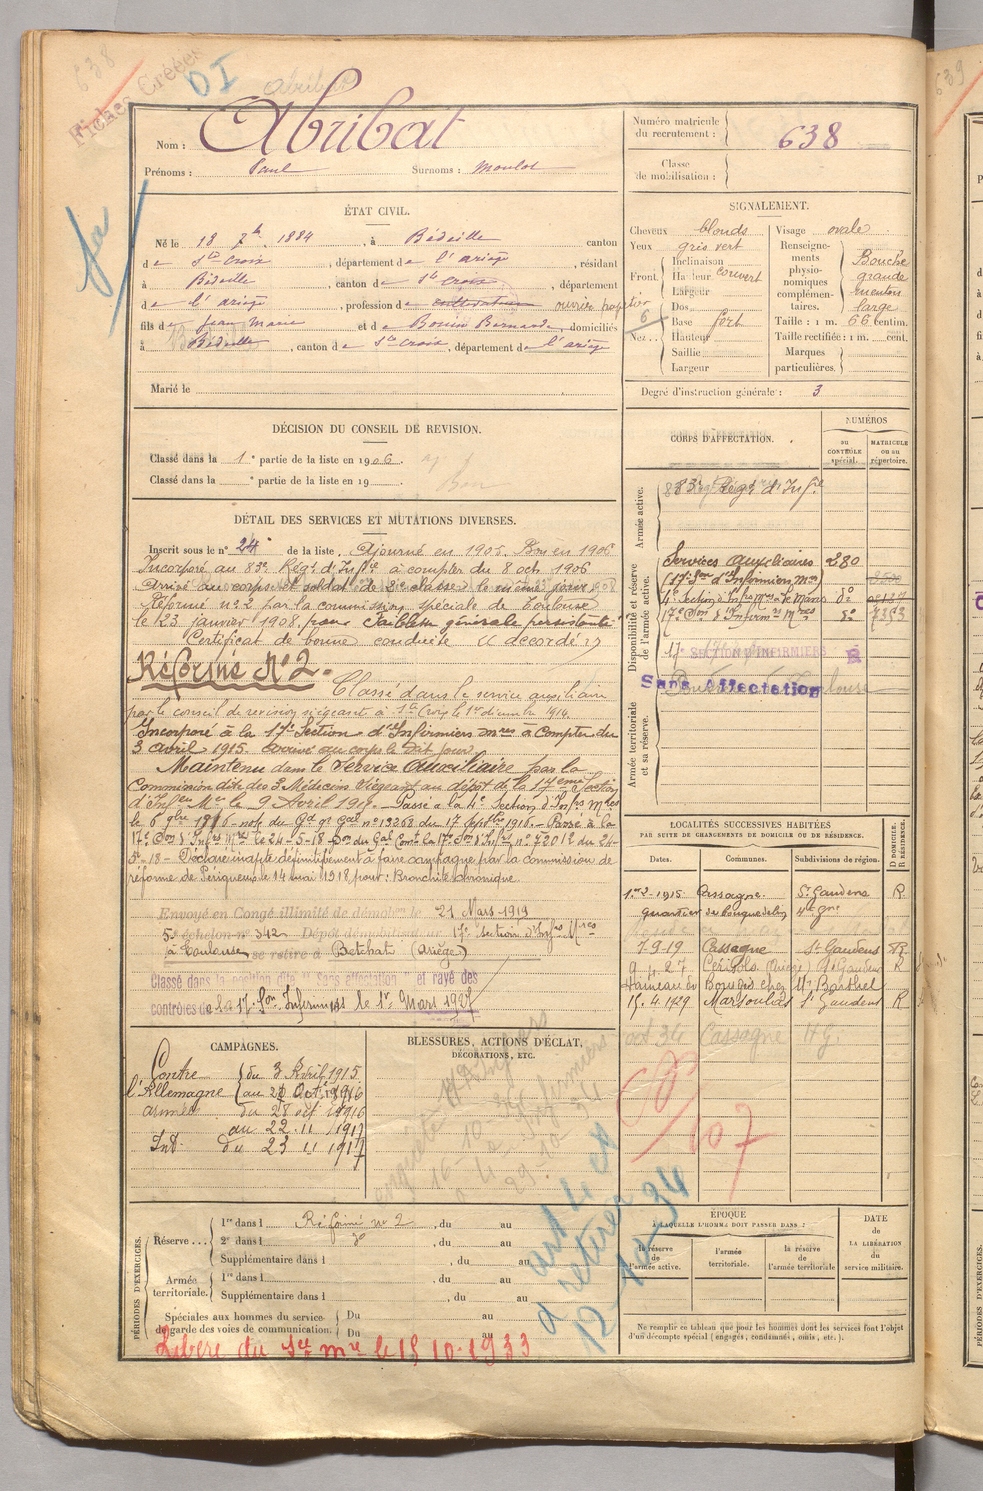 638
Fiches Créées
DI
Abribat
Nom : Abribat
Prénoms : Paul Surnoms : Moulot
Numéro matricule du recrutement : 638
Classe de mobilisation :
ÉTAT CIVIL.
Né le 18 7bre 1884, à Bédeille canton
de Ste Croix, département de l'ariège, résidant
à Bédeille, canton de Ste Croix, département
de l'ariège, profession de cultivateur ouvrier
fils de Jean Marie et de Bouin Bernarde, domiciliés
à Bédeille, canton de Ste Croix, département de l'ariège
Marié le
SIGNALEMENT.
Cheveux blonds
Yeux gris vert
Front. Inclinaison
Hauteur couvert
Largeur
Nez. Dos
Base fort
Hauteur
Saillie
Largeur
Visage ovale
Renseignements physionomiques complémentaires. Bouche grande menton large
Taille : 1 m. 66 centim.
Taille rectifiée : 1 m. cent.
Marques particulières.
6
Degré d'instruction générale : 3
DÉCISION DU CONSEIL DE REVISION.
Classé dans la 1e partie de la liste en 1906.
Classé dans la e partie de la liste en 19
Bon
DÉTAIL DES SERVICES ET MUTATIONS DIVERSES.
Inscrit sous le n° 24 de la liste. Ajourné en 1905. Bon en 1906
Incorporé au 83e Régt d'Inf.ie à compter du 8 oct 1906
Arrivé au corps et soldat de 2e classe le même jour
Réformé n° 2 par la commission spéciale de Toulouse
le 23 janvier 1908 pour faiblesse générale persistante
Certificat de bonne conduite "accordé"
Réformé N° 2.
Classé dans le service auxiliaire
par le conseil de revision siégeant à Ste Croix le 1er décembre 1914.
Incorporé à la 17e Section d'Infirmiers mres à Compter du
3 avril 1915 arrivé au corps le dit jour
Maintenu dans le Service Auxiliaire par la
Commission dite des 3 Médecins Siégeant au dépôt de la 17ème Section
d'Infers Mres le 9 Avril 1917. Passé à la 4e Section d'Infrs Mres
le 6 9bre 1916 note du Gd Qr Gal n° 13268 du 17 Septbre 1916 - Passé à la
17e Son d'Infrs Mres le 24-5-18 Son du Gal Comt la 17e Son d'Infrs n° 72012 du 24-
5-18 - Déclaré inapte définitivement à faire campagne par la commission de
réforme de Périgueux le 14 mai 1918 pour : Bronchite chronique.
Envoyé en Congé illimité de démobon le 21 Mars 1919
5e échelon n° 342 Dépôt démobilisateur 17e Section d'Infrs Mres
à Toulouse se retire à Betchat (Ariège)
Classé dans la position dite "Sans affectation" et rayé des
contrôles de la 17e Son Infirmiers le 1er Mars 1927
CORPS D'AFFECTATION.
NUMÉROS
au CONTRÔLE spécial.
MATRICULE ou au répertoire.
Armée active.
83e Régt d'Inf.ie
Disponibilité et réserve de l'armée active.
Services Auxiliaires 280
17e Son d'Infirmiers Mres
4e Section d'Infrs Mres Le Mans do
17e Son d'Infirmrs Mres do 7353
17e SECTION D'INFIRMIERS R
Sans Affectation
Toulouse
Armée territoriale et sa réserve.
LOCALITÉS SUCCESSIVES HABITÉES
PAR SUITE DE CHANGEMENTS DE DOMICILE OU DE RÉSIDENCE.
Dates. Communes. Subdivisions de région. D DOMICILE. R RÉSIDENCE.
1er 2-1915 Cassagne. St Gaudens R.
7-9-19 Cassagne St Gaudens R
9.4.27 Cérizols (Ariège) St Gaudens R
Hameau de Bourges chez Mr Barthet
15.4.1929 Marsoulas St Gaudens R
oct 34 Cassagne H G.
CAMPAGNES.
Contre l'Allemagne du 3 Avril 1915
au 27 Oct 1916
armées du 28 oct 1916
au 22.11.1917
Int. du 23 11 1917
BLESSURES, ACTIONS D'ÉCLAT, DÉCORATIONS, ETC.
107
à retirer
12-10-34
PÉRIODES D'EXERCICES.
Réserve... 1re dans l Réformé n° 2, du au
2e dans l do, du au
Supplémentaire dans l, du au
Armée territoriale. 1re dans l, du au
Supplémentaire dans l, du au
Spéciales aux hommes du service de garde des voies de communication. Du au
Du au
Libéré du sce mre le 15 10.1933
ÉPOQUE
À LAQUELLE L'HOMME DOIT PASSER DANS :
la réserve de l'armée active.
l'armée territoriale.
la réserve de l'armée territoriale
DATE DE LA LIBÉRATION du service militaire.
Ne remplir ce tableau que pour les hommes dont les services font l'objet
d'un décompte spécial (engagés, condamnés, omis, etc.).
639